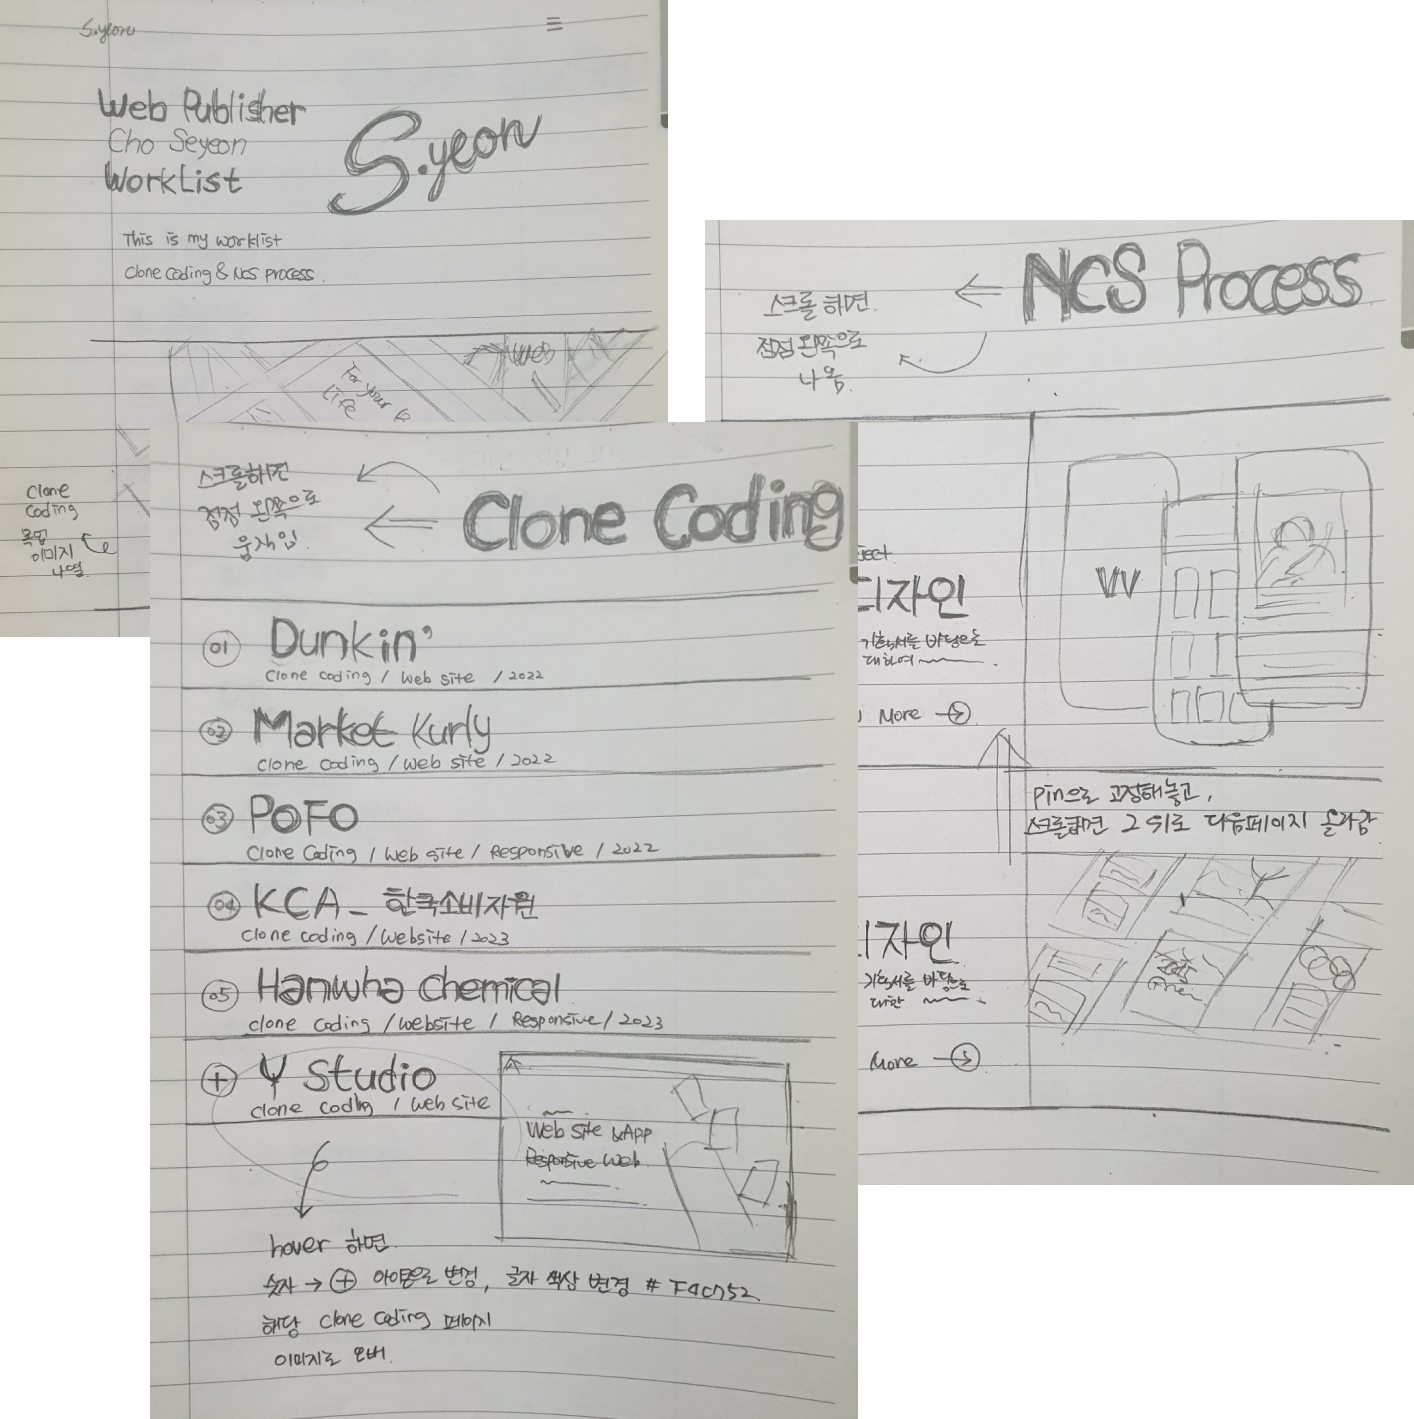 S.yeon
Web Publisher
Cho Seyeon
WorkList
S.yeon
This is my worklist
Clone Coding & Ncs process.
For your
Life
Web
Clone
Coding
목업
이미지
나열
스크롤하면
점점 왼쪽으로
움직임.
Clone Coding
01 Dunkin'
Clone coding / Web site / 2022
02 Market Kurly
Clone coding / Web site / 2022
03 POFO
Clone Coding / Web site / Responsive / 2022
04 KCA_ 한국소비자원
Clone coding / Website / 2023
05 Hanwha Chemical
Clone coding / Website / Responsive / 2023
+ Y Studio
Clone coding / Web site
Web site & APP
Responsive Web
hover 하면
숫자 → + 아이콘으로 변경, 글자 색상 변경 # F4C752
해당 Clone Coding 페이지
이미지로 오버.
스크롤 하면.
점점 왼쪽으로
나옴.
NCS Process
ject
디자인
기획서를 바탕으로
대하여
More
W
pin으로 고정해놓고,
스크롤하면 그 위로 다음페이지 올라감
디자인
기획서를 바탕으로
대한
More